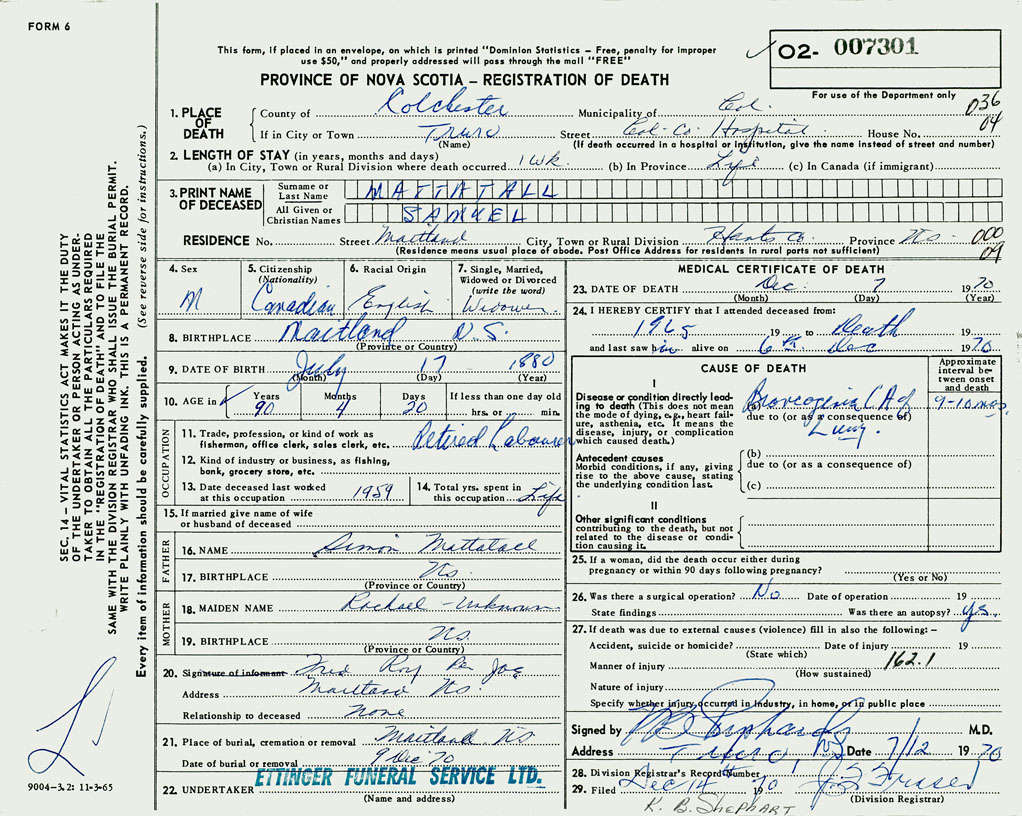 FORM 6
This form, if placed in an envelope, on which is printed "Dominion Statistics – Free, penalty for improper
use $50," and properly addressed will pass through the mail "FREE"
02- 007301
PROVINCE OF NOVA SCOTIA – REGISTRATION OF DEATH
For use of the Department only
036
04
1. PLACE OF DEATH
County of Colchester Municipality of Col.
If in City or Town Truro Street Col-Co. Hospital House No.
(Name) (If death occurred in a hospital or institution, give the name instead of street and number)
2. LENGTH OF STAY (in years, months and days)
(a) In City, Town or Rural Division where death occurred 1 wk. (b) In Province Life (c) In Canada (if immigrant)
3. PRINT NAME OF DECEASED
Surname or Last Name MATTATALL
All Given or Christian Names SAMUEL
RESIDENCE No. Street Maitland City, Town or Rural Division Hants Co. Province NS
(Residence means usual place of abode. Post Office Address for residents in rural parts not sufficient)
000
09
4. Sex M
5. Citizenship (Nationality) Canadian
6. Racial Origin English
7. Single, Married, Widowed or Divorced (write the word) Widower
8. BIRTHPLACE Maitland N.S.
(Province or Country)
9. DATE OF BIRTH July 17 1880
(Month) (Day) (Year)
10. AGE in Years 90 Months 4 Days 20 If less than one day old hrs. or min.
OCCUPATION
11. Trade, profession, or kind of work as fisherman, office clerk, sales clerk, etc. Retired Labourer
12. Kind of industry or business, as fishing, bank, grocery store, etc.
13. Date deceased last worked at this occupation 1959
14. Total yrs. spent in this occupation Life
15. If married give name of wife or husband of deceased
FATHER
16. NAME Simon Mattatall
17. BIRTHPLACE NS.
(Province or Country)
MOTHER
18. MAIDEN NAME Rachael - Unknown
19. BIRTHPLACE NS.
(Province or Country)
20. Signature of informant Roy
Address Maitland NS.
Relationship to deceased None
21. Place of burial, cremation or removal Maitland NS
Date of burial or removal 9 Dec 70
22. UNDERTAKER ETTINGER FUNERAL SERVICE LTD.
(Name and address)
MEDICAL CERTIFICATE OF DEATH
23. DATE OF DEATH Dec. 7 1970
(Month) (Day) (Year)
24. I HEREBY CERTIFY that I attended deceased from:
1965 19 to Death 19
and last saw him alive on 6th Dec 1970
CAUSE OF DEATH
Approximate interval between onset and death
I
Disease or condition directly leading to death (This does not mean the mode of dying, e.g., heart failure, asthenia, etc. It means the disease, injury, or complication which caused death.)
(a) Broncogenic CA of Lung. 9-10 mos.
due to (or as a consequence of)
Antecedent causes
Morbid conditions, if any, giving rise to the above cause, stating the underlying condition last.
(b)
due to (or as a consequence of)
(c)
II
Other significant conditions
contributing to the death, but not related to the disease or condition causing it.
25. If a woman, did the death occur either during
pregnancy or within 90 days following pregnancy?
(Yes or No)
26. Was there a surgical operation? No Date of operation 19
State findings Was there an autopsy? yes.
27. If death was due to external causes (violence) fill in also the following: –
Accident, suicide or homicide? Date of injury 19
(State which)
162.1
Manner of injury
(How sustained)
Nature of injury
Specify whether injury occurred in industry, in home, or in public place
Signed by M.D.
Address Truro, NS Date 7/12 1970
28. Division Registrar's Record Number
29. Filed Dec 14 1970 Fraser
(Division Registrar)
K. B. SHEPHART
SEC. 14 – VITAL STATISTICS ACT MAKES IT THE DUTY
OF THE UNDERTAKER OR PERSON ACTING AS UNDER-
TAKER TO OBTAIN ALL THE PARTICULARS REQUIRED
IN THE "REGISTRATION OF DEATH" AND TO FILE THE
SAME WITH THE DIVISION REGISTRAR WHO SHALL ISSUE THE BURIAL PERMIT.
WRITE PLAINLY WITH UNFADING INK. THIS IS A PERMANENT RECORD.
Every item of information should be carefully supplied. (See reverse side for instructions.)
9004-3.2: 11-3-65